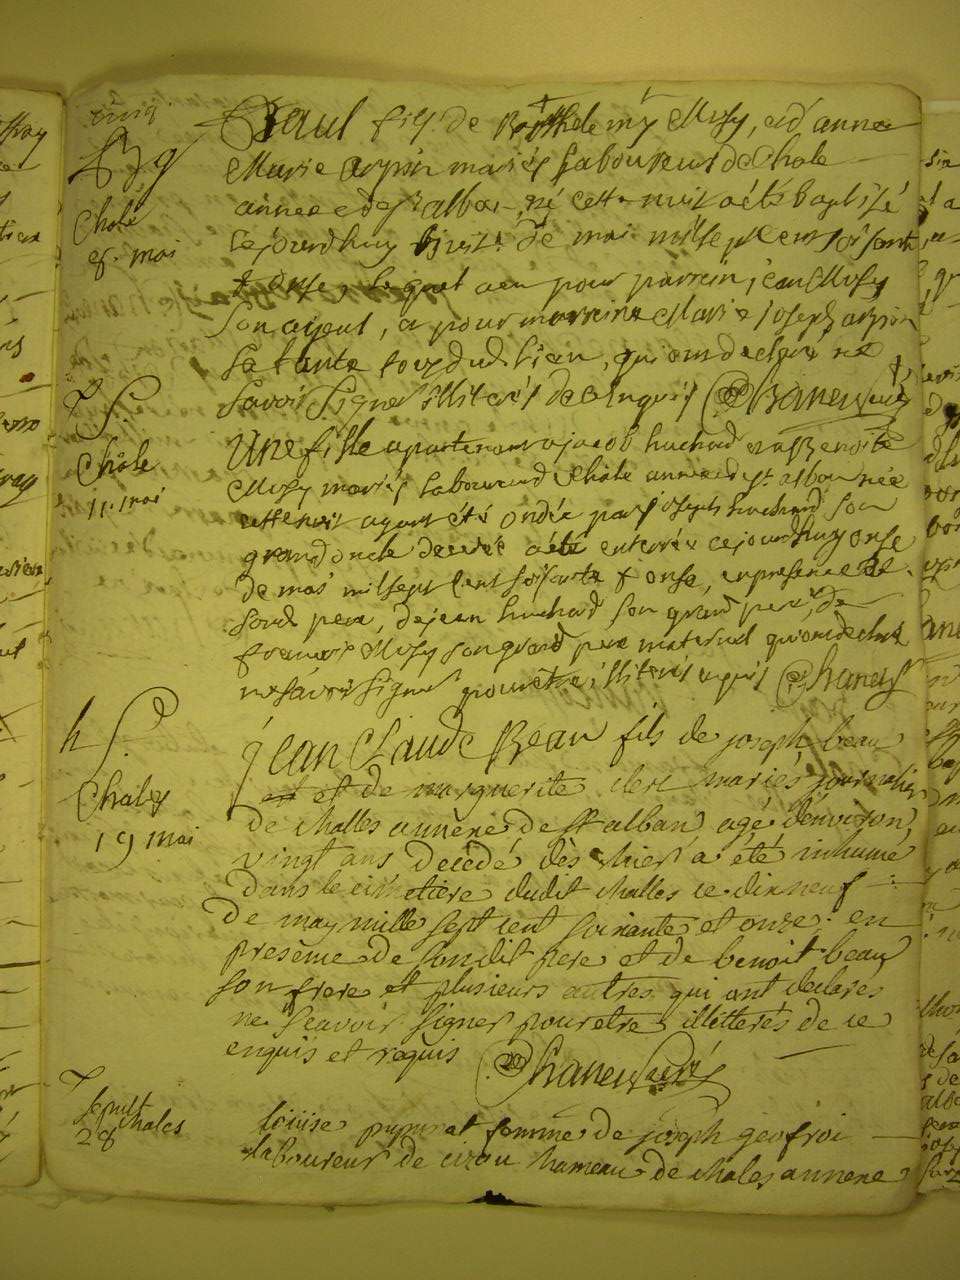 Bg
Chale
8. mai
Paul fils de Barthelemy Musy, et d'anne
Marie arpin mariés Laboureurs de Chale
annexe de st alban, né cette nuit a été baptisé
cejourdhuy huit de mai mil sept cent soisante
& onse, lequel a eu pour parrein jean Musy
son ayeul, & pour marreine Marie joseph arpin
sa tante tous dud. lieu, qui ont declaré ne
savoir signer illiterés de ce enquis
S
Chale
11. mai
Une fille apartenant a jacob huchard et a Benoite
Musy mariés Laboureurs de Chale annexe de st. alban née
cette nuit ayant été ondée par joseph huchard son
grand oncle decedée a été enterrée cejourdhuy onse
de mai mil sept cent soisante & onse, en presence de
sond. pere, de jean huchard son grand pere, de
françois Musy son grand pere maternel qui ont declaré
ne savoir signer pour etre illiterés enquis
h S.
Chales
19 mai
jean Claude Beau fils de joseph beau
et de marguerite clerc mariés journalier
de challes annexe de st alban agé d'environ
vingt ans decedé dès hier a été inhumé
dans le cimetiere dudit challes ce dix neuf
de may mille sept cent soixante et onze: en
presence de sondit pere et de benoit beau
son frere et plusieurs autres qui ont declarés
ne sçavoir signer pour etre illitterés de ce
enquis et requis
sepult
chales
28
louise femme de joseph geofroi
laboureur de cizou hameau de chales annexe